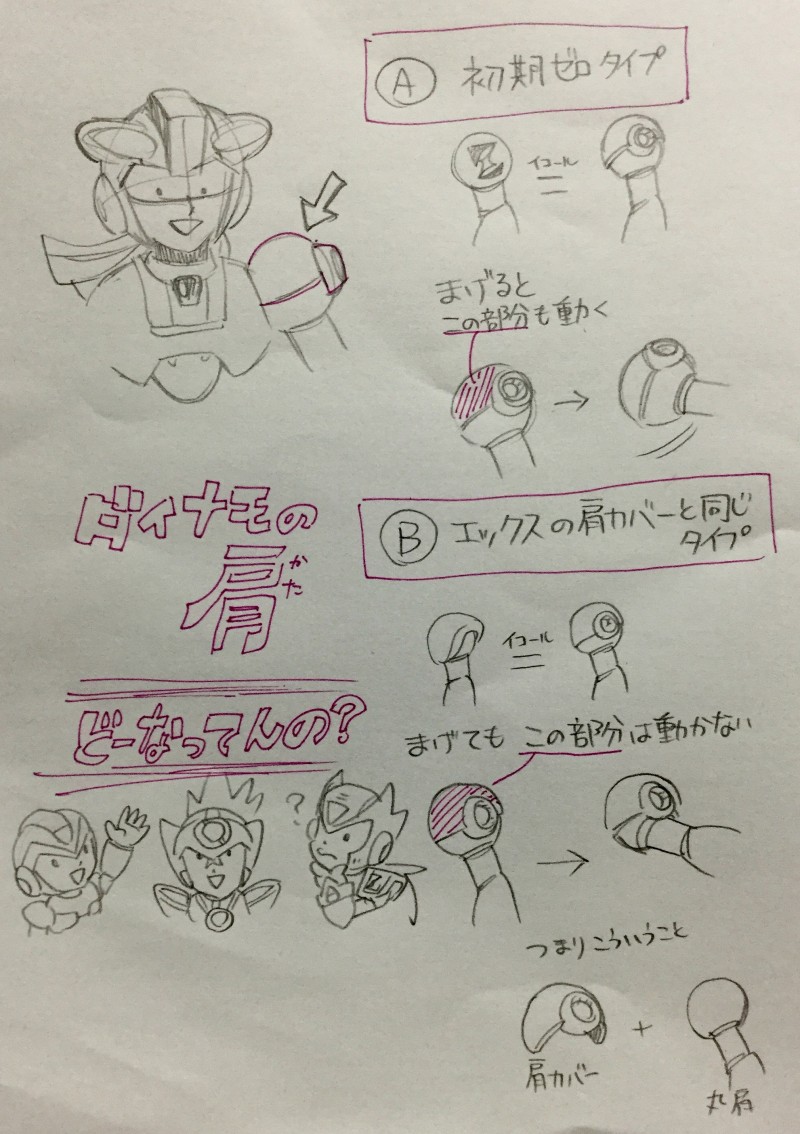 Ⓐ 初期ゼロタイプ
イコール
=
まげると
この部分も動く
→
ダイナモの
肩
かた
どーなってんの?
?
Ⓑ エックスの肩カバーと同じ
タイプ
イコール
=
まげても この部分は動かない
→
つまりこういうこと
+
肩カバー
丸肩